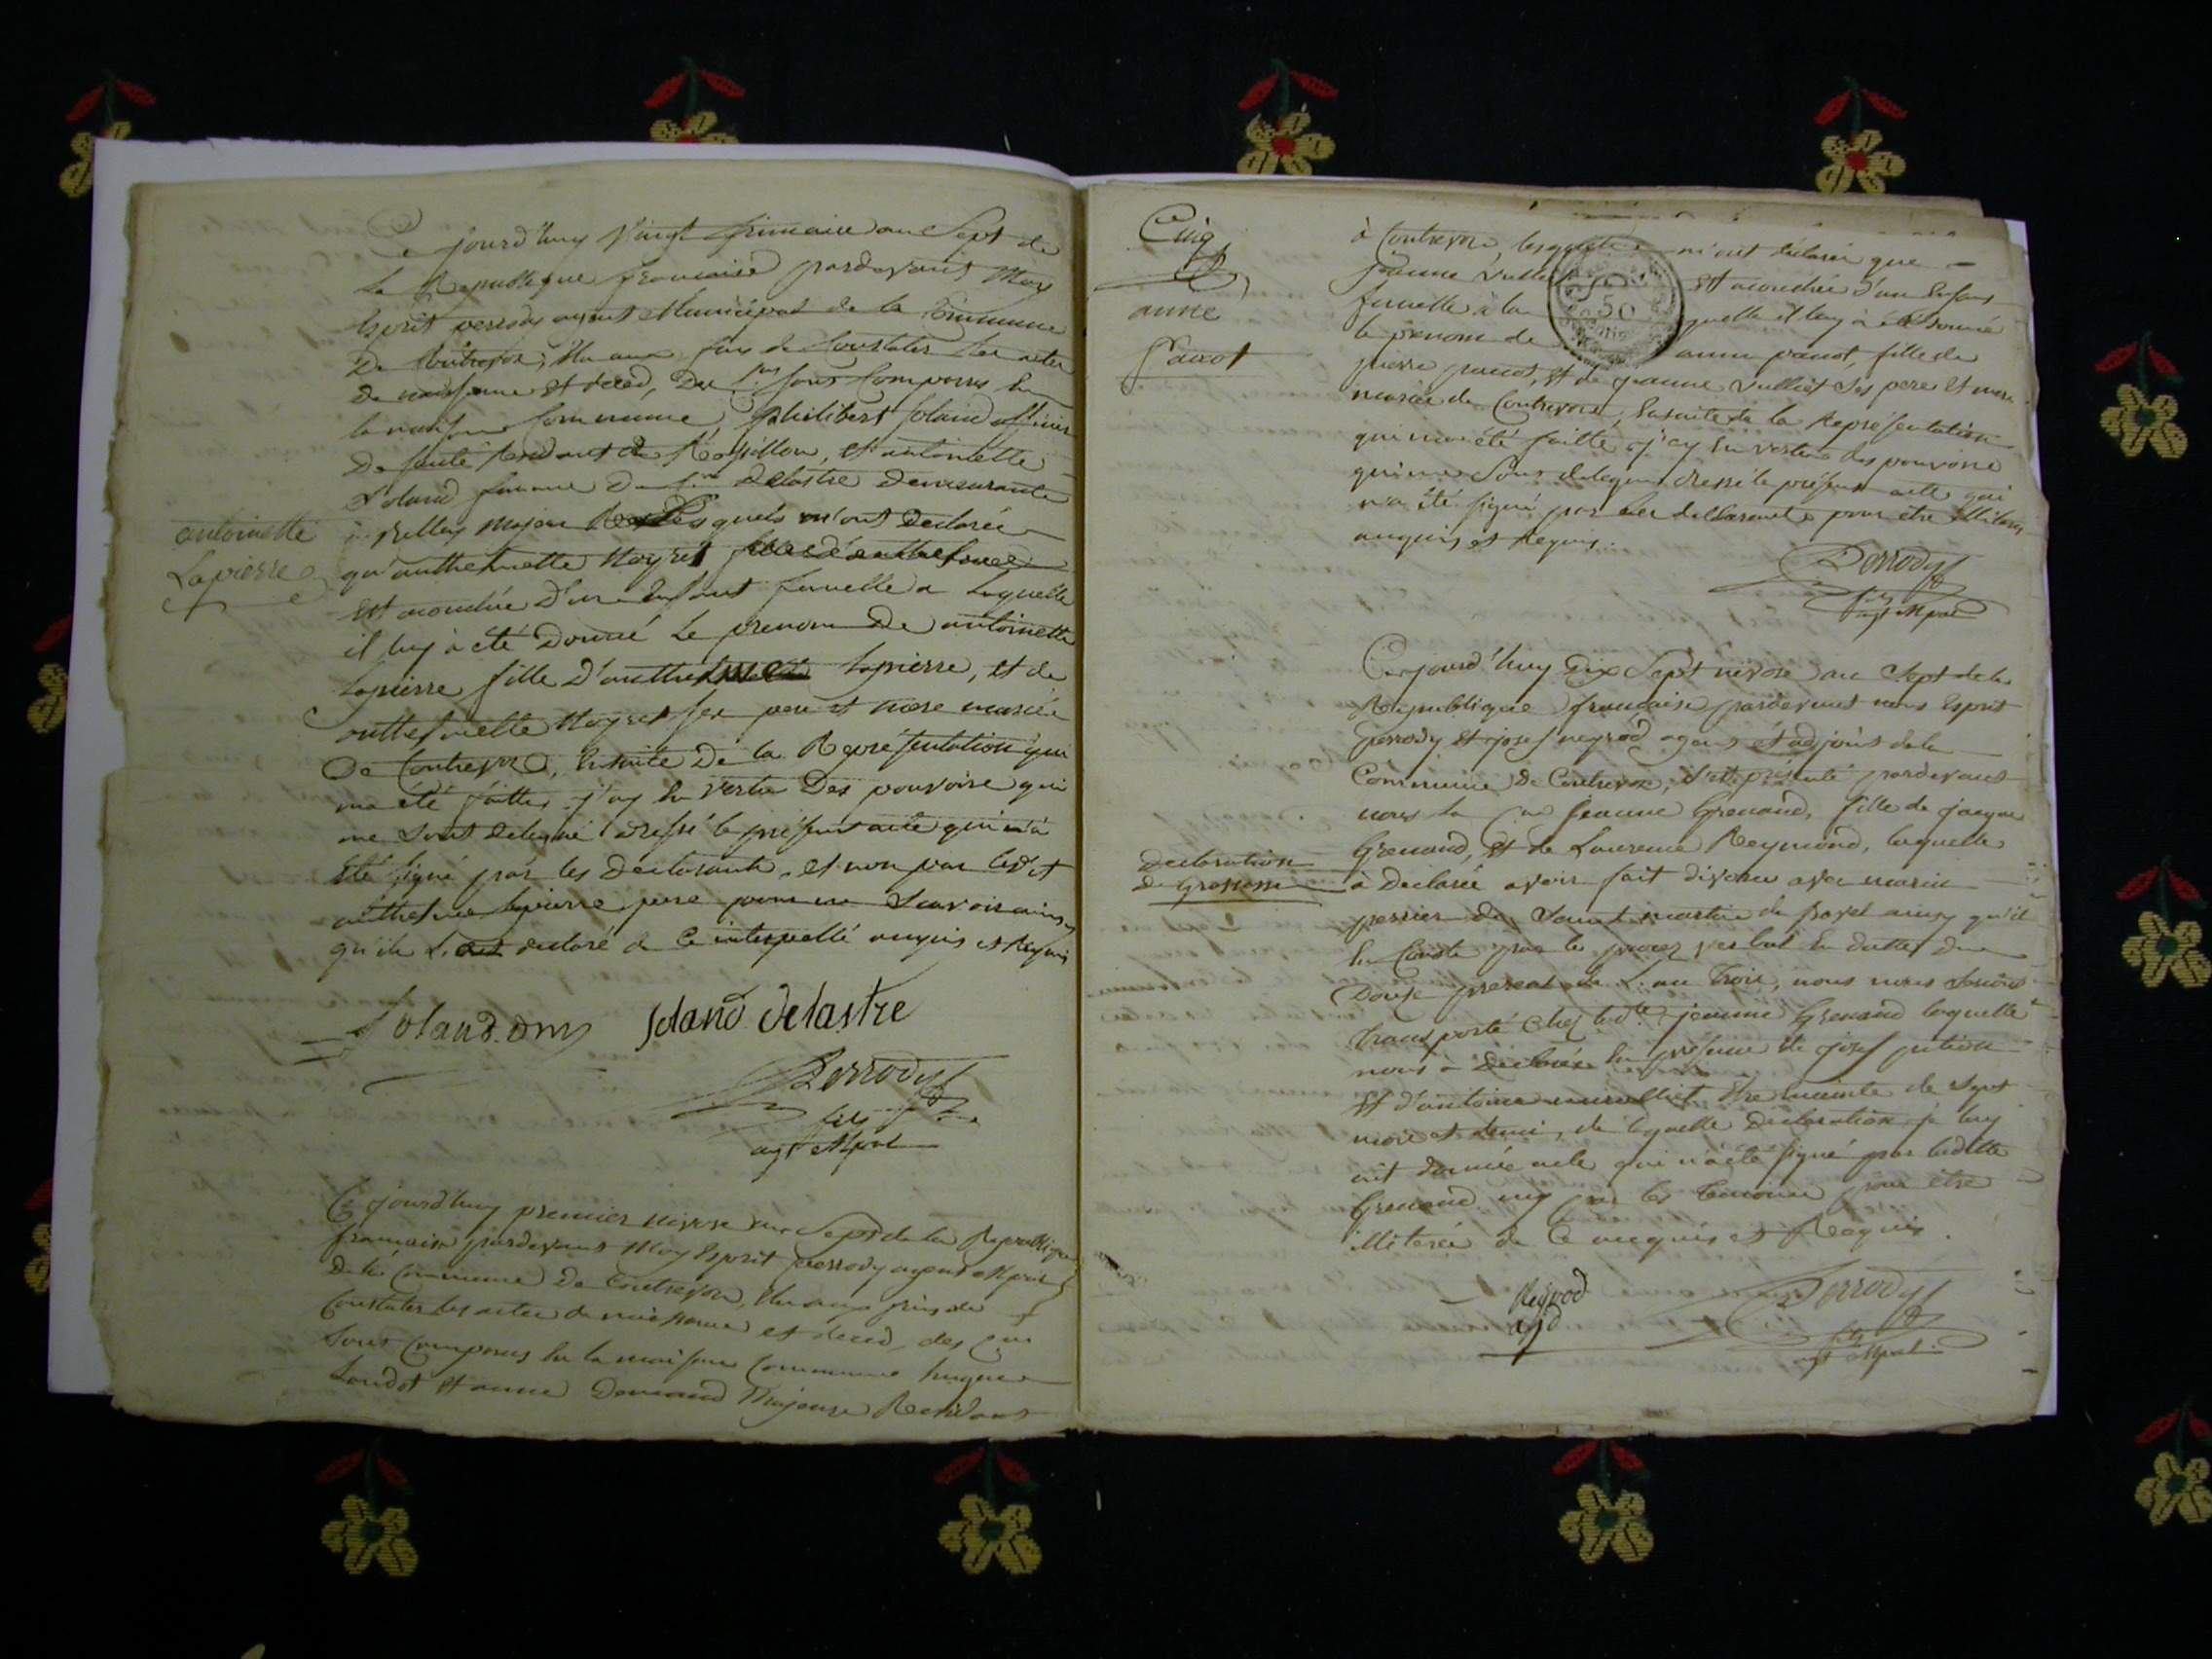 Ce jourd'huy Vingt frimaire an Sept de
la Republique francaise pardevant Moy
Esprit perrody agent Municipal de la Commune
De Contrevoz, Elu aux fins de Constater les actes
de naissance et deced, Des Cens sont Comparus En
la maison Commune, philibert soland officier
De santé Residant à Rossillon, et antoinette
Soland femme Du Cen Delastre Demeurante
à Belley majeur Lesquels m'ont Declarée
qu'anthelmette Moyret
Est acouchée D'un Enfant femelle a Laquelle
il luy à été Donné Le prenom De antoinette
Lapierre fille D'anthelme Lapierre, et de
anthelmette Moyret ses pere et mere mariée
De Contrevoz, Ensuite De la Representation qui
ma été faitte j'ay En vertu Des pouvoirs qui
me sont delegué dressé le présent acte qui m'a
Eté signé par les Declarants, et non par ledit
anthelme lapierre pere pour ne Scavoir ainsy
qu'ils L'ont declaré de Ce interpellé enquis et Requis
antoinette
Lapierre
Soland. oms Soland Delastre
Perrody
fils
agt Mpal
Ce jourd'huy premier nivose an Sept de la Republique
francaise pardevant Moy Esprit perrody agent Mpal
De la Commune De Contrevoz, Elu aux fins de
Constater les actes de naissance et deced, des Cens
Sont Comparus En la maison Commune hugues
Loudot et anne Demand Majeurs Residant
Cinq
anne
pauot
à Contrevoz, lesquels m'ont déclaré que
Jeanne Vulliet Est acouchée d'un Enfant
femelle à laquelle il luy à été donné
le prenom de anne pauot, fille de
pierre pauot, et de Jeanne Vulliet ses pere et mere
mariée de Contrevoz, Ensuite de la Représentation
qui m'a été faitte j'ay En vertu des pouvoirs
qui me Sont delegué dressé le présent acte qui
n'a été signé par les declarants pour être illiteres
enquis et Requis.
50
Perrody
fils
agt Mpal
Ce jourd'huy Dix Sept nivose an Sept de la
Republique francaise pardevant nous Esprit
perrody et josef neyrod agent et adjoint de la
Commune De Contrevoz, s'est présenté pardevant
nous la Cne Jeanne Grenaud, fille de jacque
Grenaud, et de Laurence Reymond, laquelle
à Declarée avoir fait divorce avec
perrier de Saint martin de bavel ainsy qu'il
En Conste par le procez verbal En datte du
Douze prereal de L'an trois, nous nous Somes
transporté chez ladte jeanne Grenaud laquelle
nous à Declarée En présence de josef
Et d'antoine Etre Enceinte de Sept
mois et demi, de laquelle Declaration je luy
ait donnée acte qui n'a été signé par laditte
Grenaud ny par les temoins pour être
illiterée de Ce enquis et Requis.
Declaration
De Grossesse
Neyrod
adj
Perrody
fils
agt Mpal